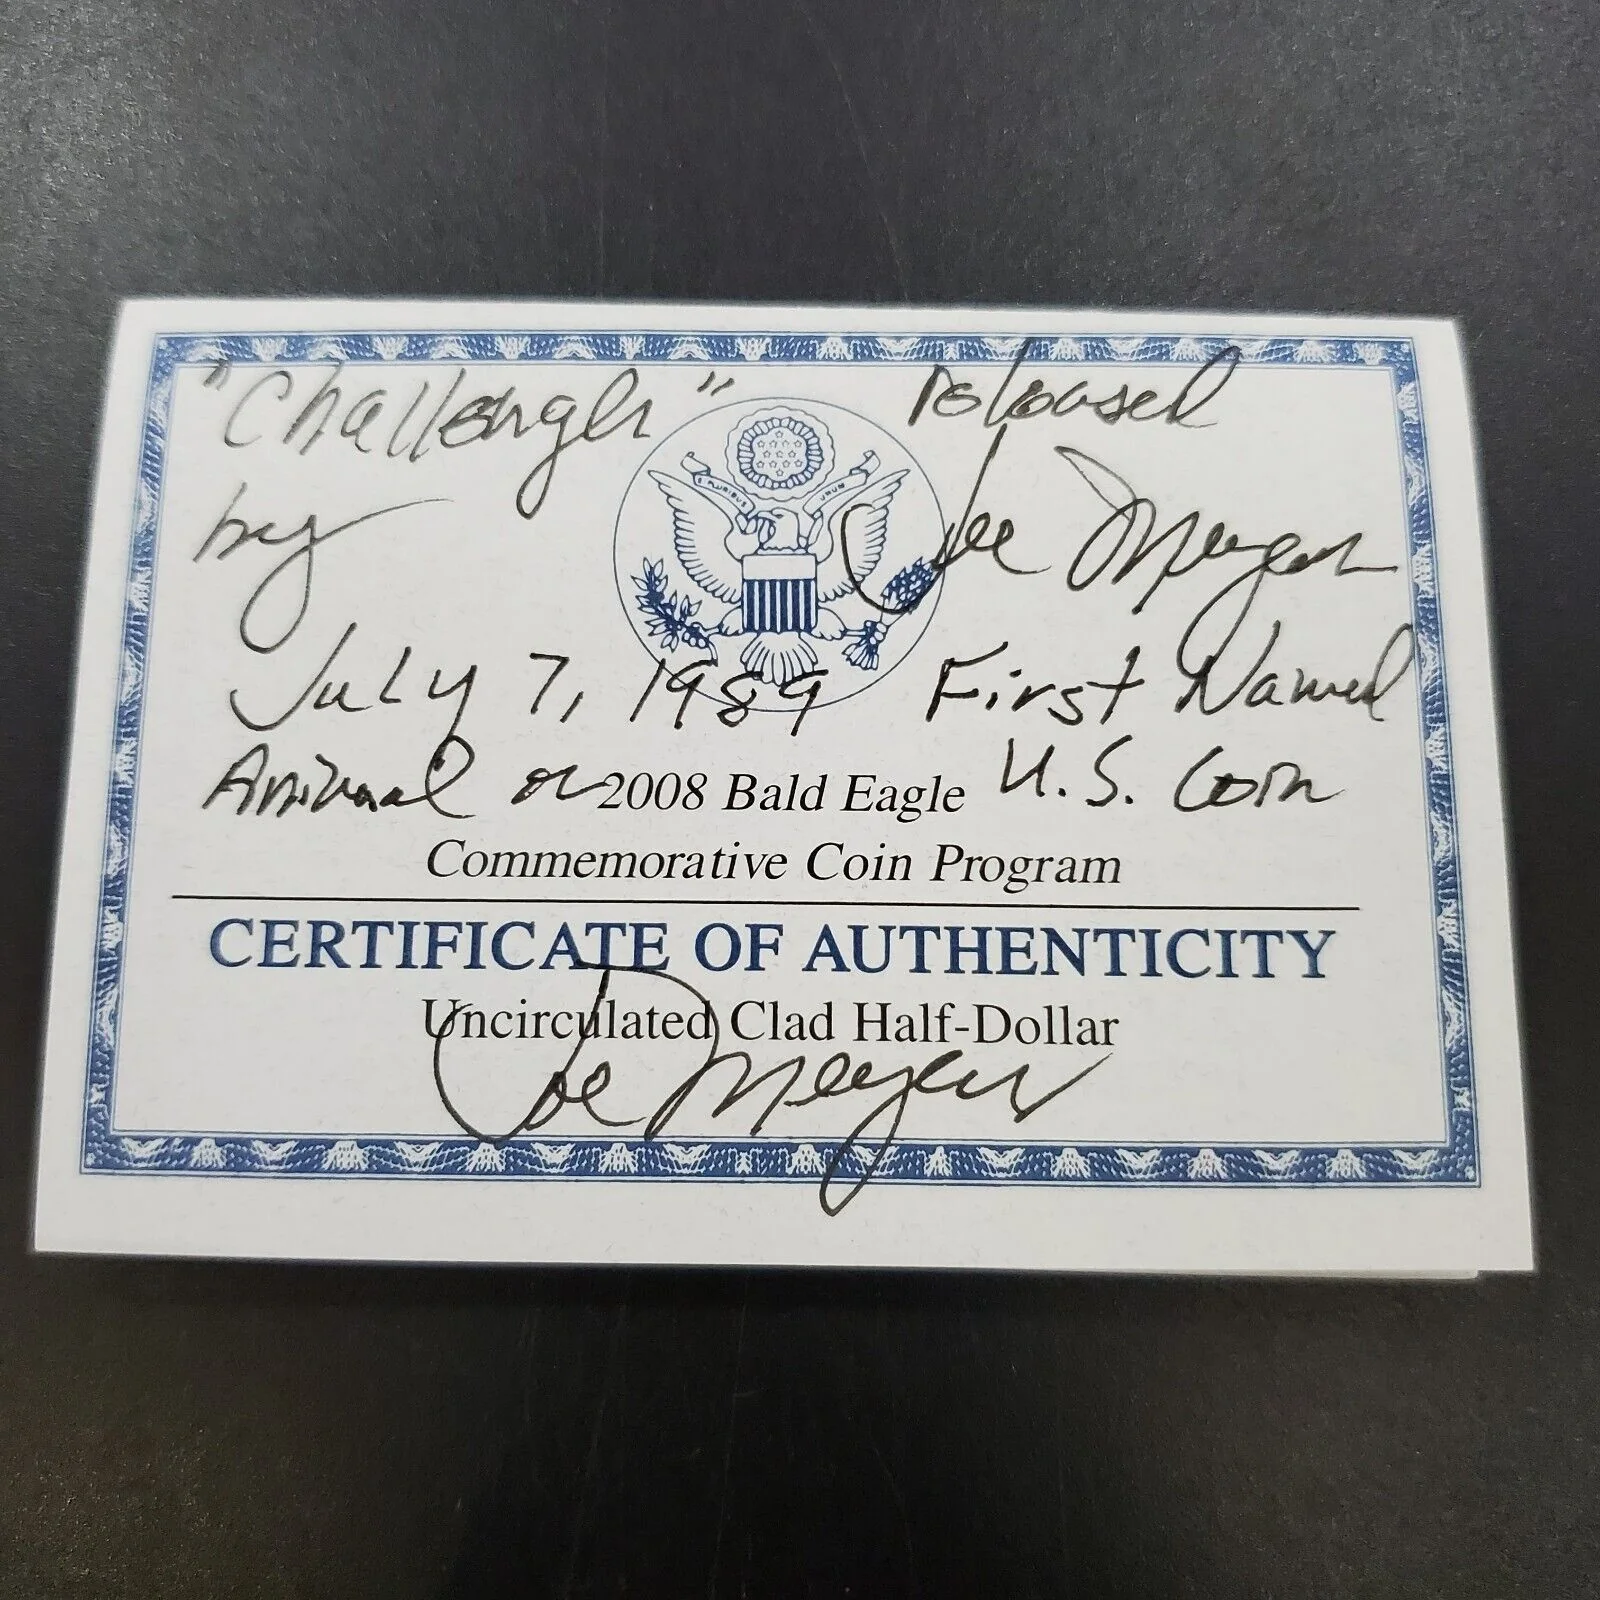 "Challenger" released
E PLURIBUS UNUM
by Joe Meyer
July 7, 1989 First Named
Animal on U.S. Coin
2008 Bald Eagle
Commemorative Coin Program
CERTIFICATE OF AUTHENTICITY
Uncirculated Clad Half-Dollar
Joe Meyer